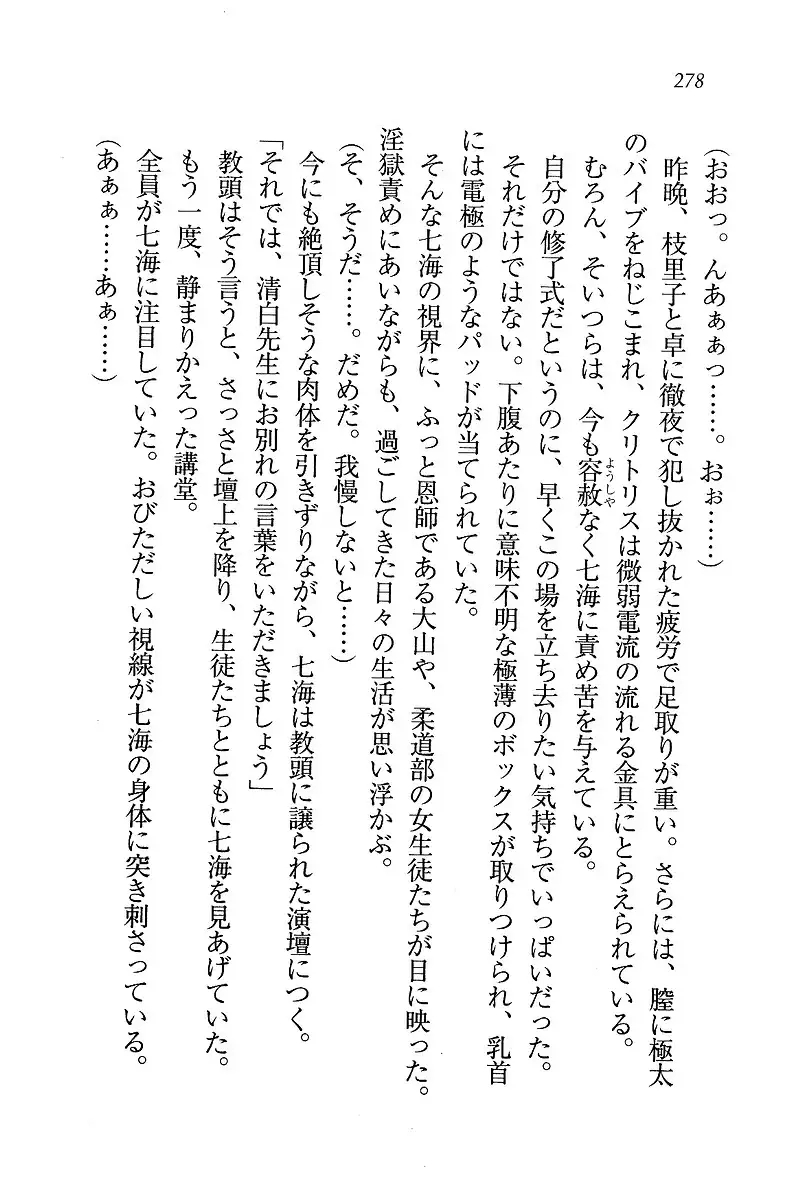 278
（おおっ。んあぁぁっ……。おぉ……）
昨晩、枝里子と卓に徹夜で犯し抜かれた疲労で足取りが重い。さらには、膣に極太
のバイブをねじこまれ、クリトリスは微弱電流の流れる金具にとらえられている。
むろん、そいつらは、今も容赦なく七海に責め苦を与えている。
ようしゃ
自分の修了式だというのに、早くこの場を立ち去りたい気持ちでいっぱいだった。
それだけではない。下腹あたりに意味不明な極薄のボックスが取りつけられ、乳首
には電極のようなパッドが当てられていた。
そんな七海の視界に、ふっと恩師である大山や、柔道部の女生徒たちが目に映った。
淫獄責めにあいながらも、過ごしてきた日々の生活が思い浮かぶ。
（そ、そうだ……。だめだ。我慢しないと……）
今にも絶頂しそうな肉体を引きずりながら、七海は教頭に譲られた演壇につく。
「それでは、清白先生にお別れの言葉をいただきましょう」
教頭はそう言うと、さっさと壇上を降り、生徒たちとともに七海を見あげていた。
もう一度、静まりかえった講堂。
全員が七海に注目していた。おびただしい視線が七海の身体に突き刺さっている。
（あぁぁ……あぁ……）